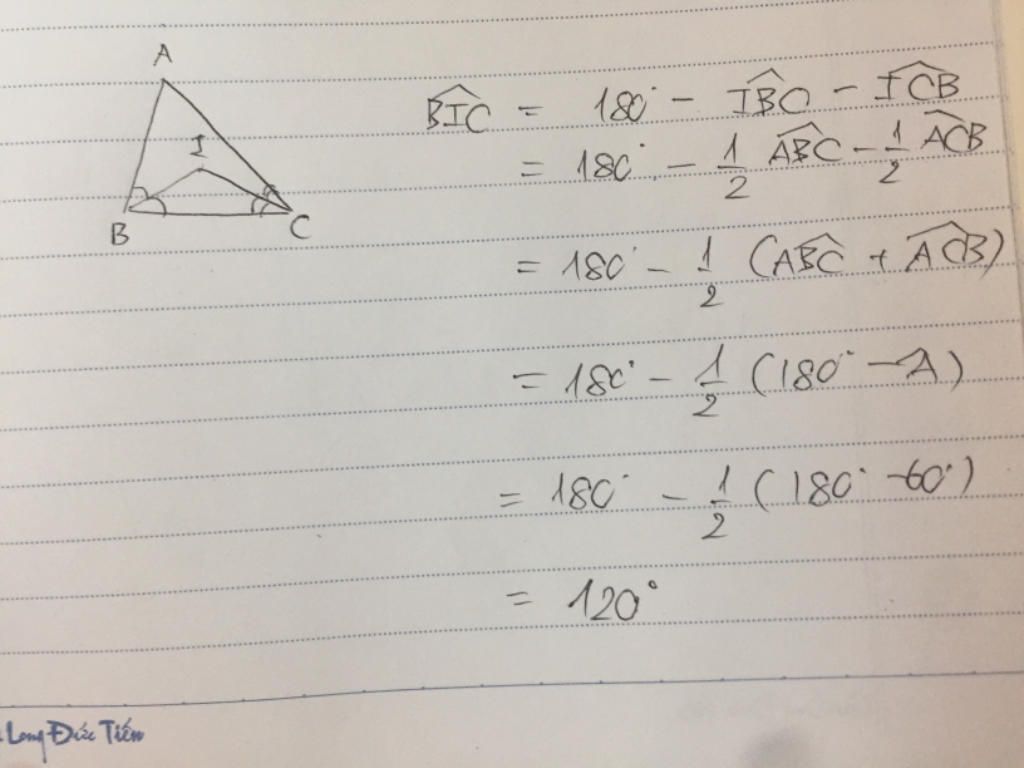 A
I
B
C
B̂IC = 180° - ÎBC - ÎCB
= 180° - 1/2 ÂBC - 1/2 ÂCB
= 180° - 1/2 (ÂBC + ÂCB)
= 180° - 1/2 (180° - Â)
= 180° - 1/2 (180° - 60°)
= 120°
Long Đức Tiến